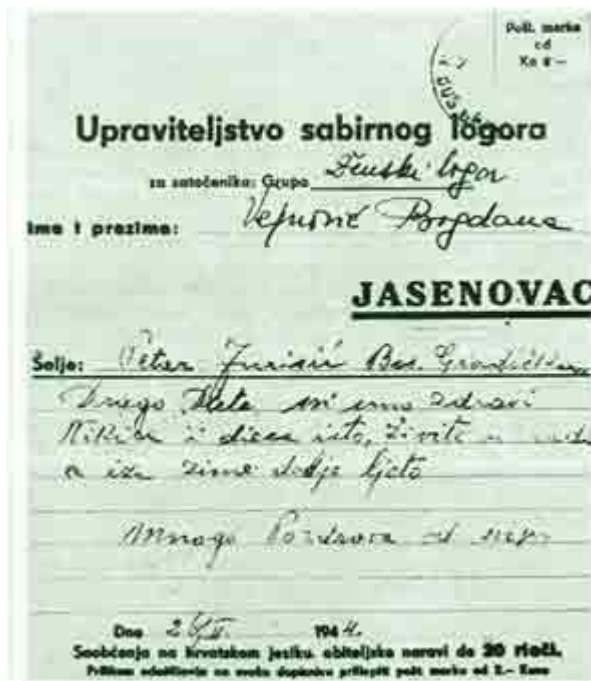 Pošt. marka
od
Kn 2 –
Upraviteljstvo sabirnog logora
za satočenika: Grupa Ženski logor
Ime i prezime: Vejnović Bogdana
JASENOVAC
Šalje: Petar Jurišić Bos. Gradiška
Drago Dete, mi smo zdravi
i dieca isto, živite u
a iza zime dolje ljeto
Mnogo Pozdrava od
Dne 26/II. 1944.
Saobćenja na hrvatskom jeziku, obiteljske naravi do 20 rieči.
Prilikom odašiljanja na svaku dopisnicu prilepiti pošt. marku od 2.– Kune